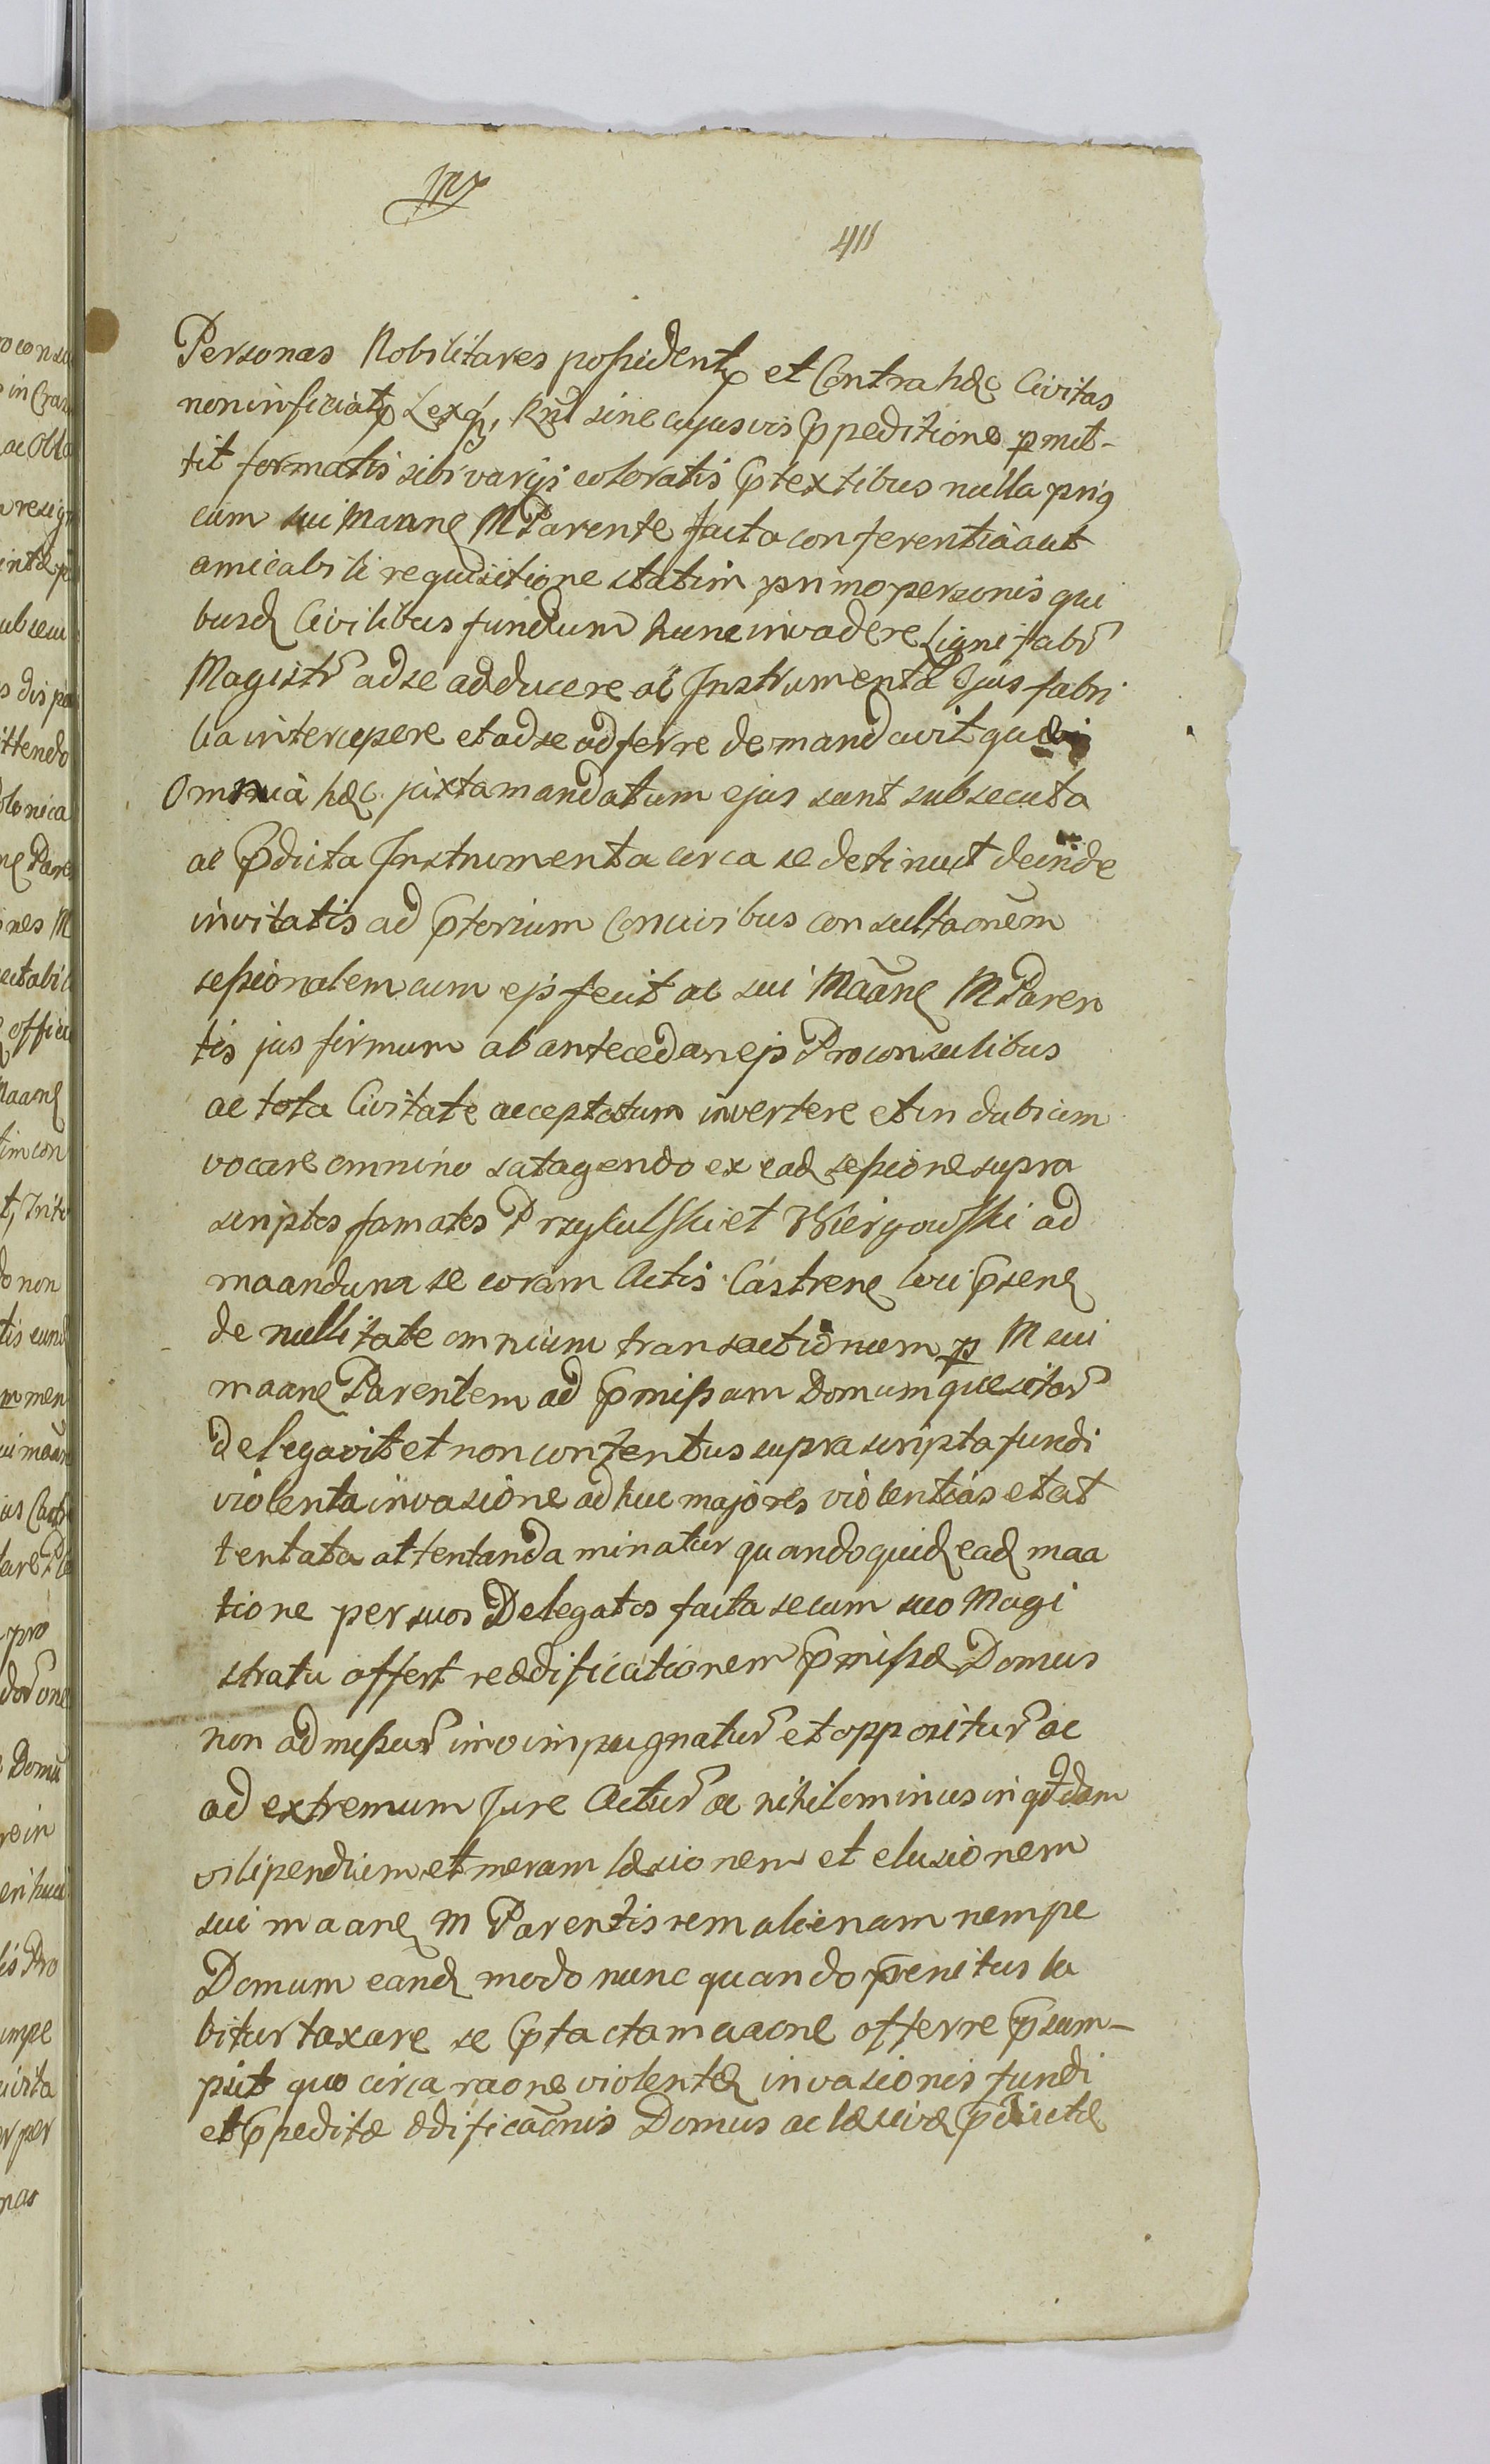 411
Personas Nobilitares possident et Contra hæc Civitas
non inficiat Lexq, Rnt sine cujusvis ppeditione pmit-
tit formatis sibi varijs coloratis ptextibus nulla prig
cum sui Maane M Parente facta conferentia aut
amicabili requisitione statim primo personis qui
busd Civilibus fundum hunc invadere Ligni fabr
Magistr ad se adducere ac Instrumenta Ejus fabri
lia intercipere et ad se adferre demandavit quæ
Omnia hæc juxta mandatum ejus sunt subsecuta
ac pdicta Instrumenta circa se detinuit deinde
invitatis ad ptorium Concivibus consultaonem
sessionalem cum ejs fecit ac sui Maane M Paren
tis jus firmum ab antecedanejs Proconsulibus
ac tota Civitate acceptatum invertere et in dubium
vocare omnino satagendo ex ead sessione supra
scriptos famatos Przykulski et Wiergowski ad
maandum se coram Actis Castrens loci psens
de nullitate omnium transactionum p M sui
maane Parentem ad pmissam Domum quesitar
delegavit et non contentus supra scripta fundi
violenta invasione adhuc majores violentias et at
tentata attentanda minatur quandoquid ead maa
tione per suos Delegatos facta secum suo Magi
stratu offert reædificationem pmissæ Domus
non admissur imo impugnatur et oppositur ac
ad extremum Jure Actur ac nihilominus in qddam
vilipendium et meram læsionem et elusionem
sui maane M Parentis rem alienam nempe
Domum eand modo nunc quando penitus la
bitur taxare se ptacta maaone offerre psum-
psit quo circa raone violentæ invasionis fundi
et ppeditæ ædificaonis Domus ac pdictæ